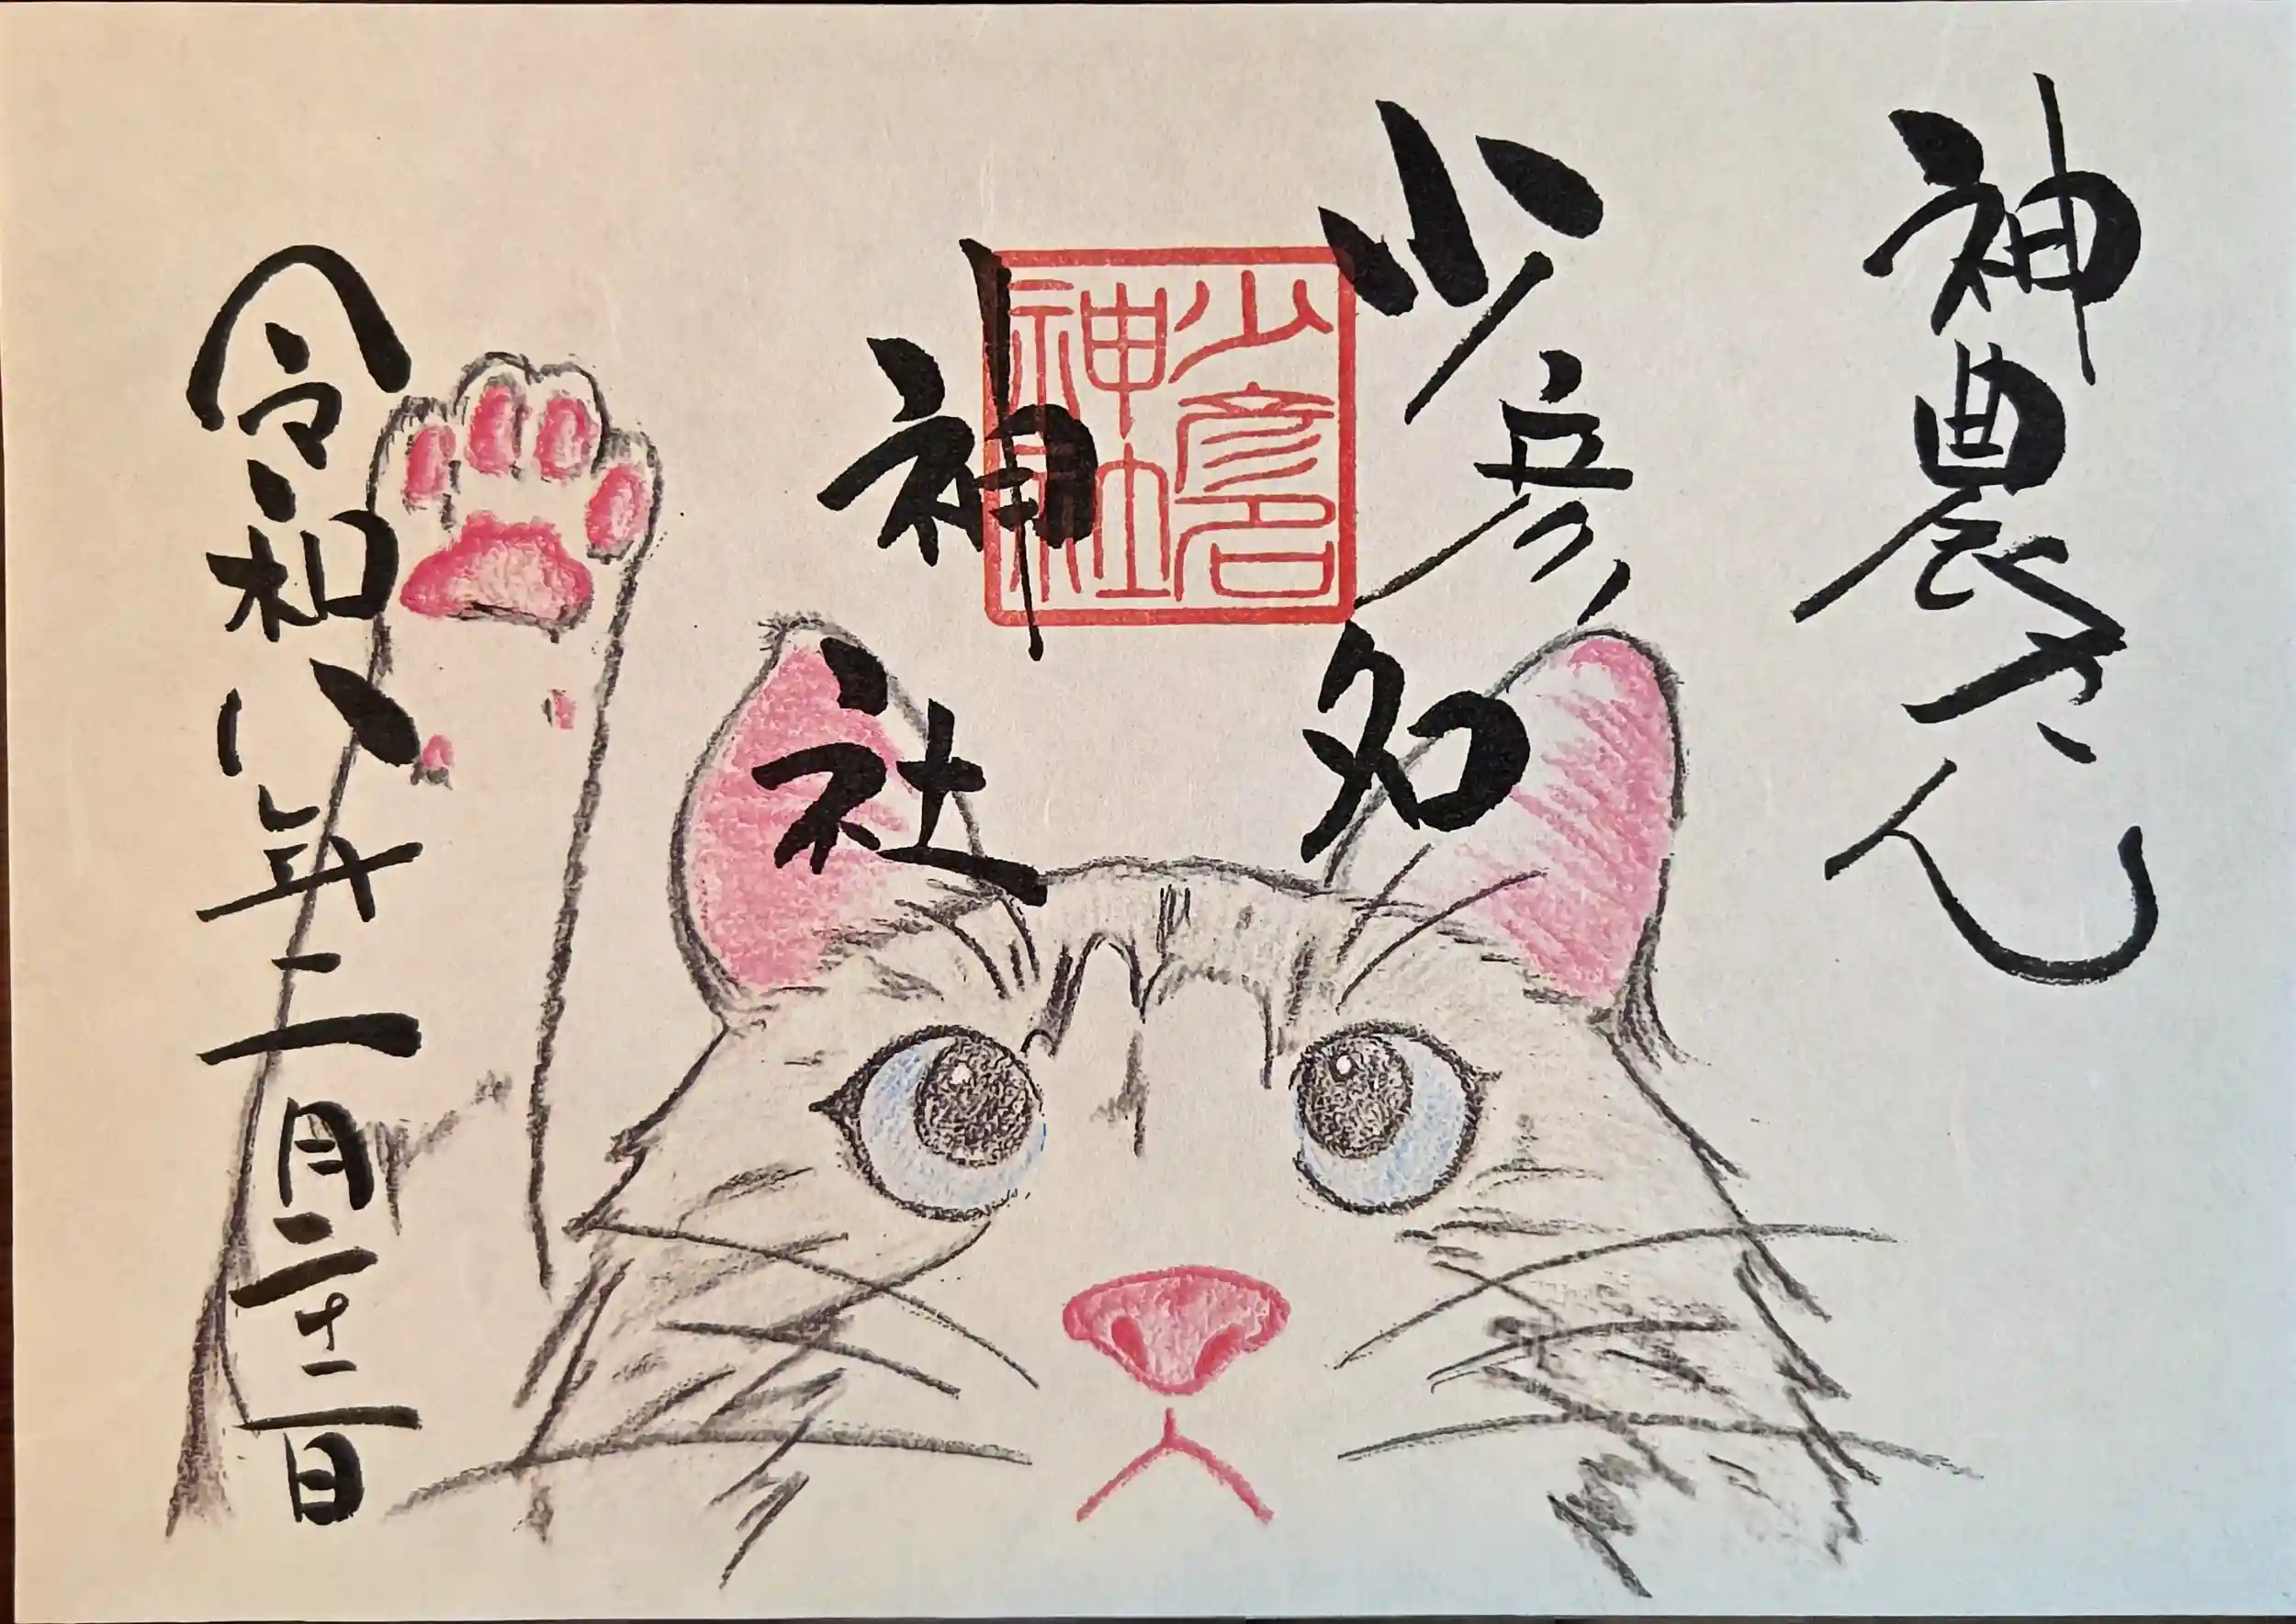 神農さん
少彦名
神社
少彦名
神社
令和八年二月二十二日